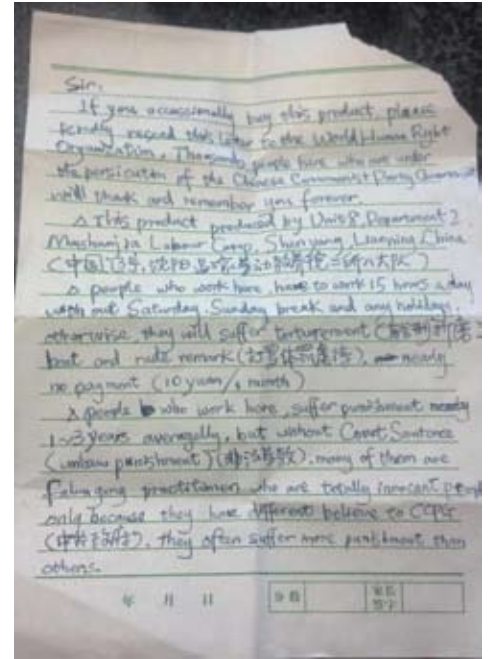 Sir,
If you occassionally buy this product, please
kindly resend this letter to the World Human Right
Organization. Thousands people here who are under
the persicution of the Chinese Communist Party Government
will thank and remember you forever.
△ This product produced by Unit 8, Department 2,
Mashanjia Labour Camp, Shenyang, Liaoning, China
(中国, 辽宁, 沈阳 马 家 劳动教养 院 二所八大队)
△ people who work here, have to work 15 hours a day
with out Saturday, Sunday break and any holidays,
otherwise, they will suffer torturement (
beat and rude remark (打骂体罚虐待), nearly
no payment (10 yuan/1 month)
△ people who work here, suffer punishment nearly
1~3 years averagelly, but without Court Sentence
(unlaw punishment) (非法劳教), many of them are
Falun gong practitioner, who are totally innocent people
only because they have different believe to CCPG
(), they often suffer more punishment than
others.
年 月 日